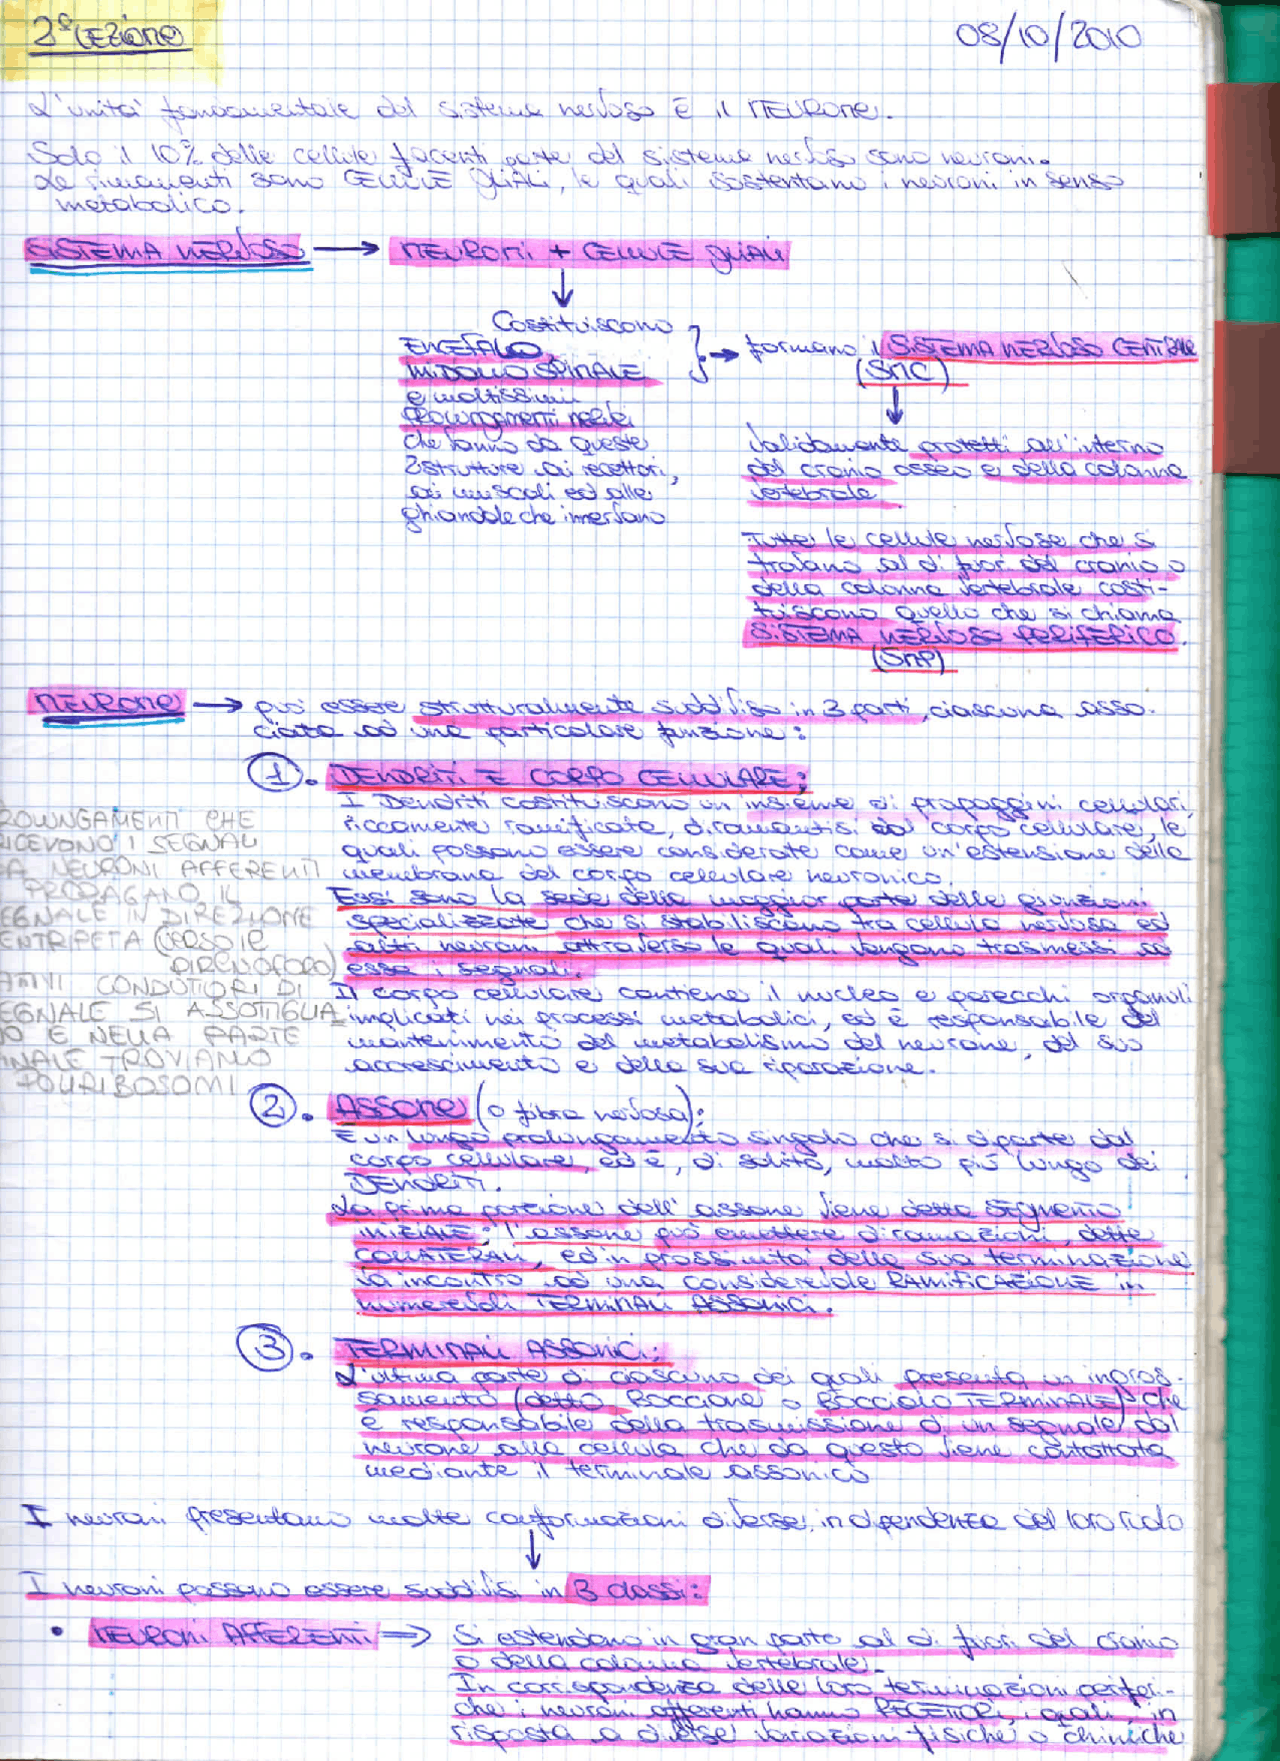 2ª LEZIONE
08/10/2010
L'unità fondamentale del sistema nervoso è il NEURONE.
Solo il 10% delle cellule facenti parte del sistema nervoso sono neuroni.
Le rimanenti sono CELLULE GLIALI, le quali sostentano i neuroni in senso
metabolico.
SISTEMA NERVOSO → NEURONI + CELLULE GLIALI
↓
Costituiscono
ENCEFALO
MIDOLLO SPINALE
e moltissimi
PROLUNGAMENTI NERVEI
che vanno da queste
2 strutture ai recettori,
ai muscoli ed alle
ghiandole che innervano
} → formano il SISTEMA NERVOSO CENTRALE
(SNC)
↓
Validamente protetti all'interno
del cranio osseo e della colonna
vertebrale.
Tutte le cellule nervose che si
trovano al di fuori del cranio o
della colonna vertebrale costi-
tuiscono quello che si chiama
SISTEMA NERVOSO PERIFERICO.
(SNP)
NEURONE → può essere strutturalmente suddiviso in 3 parti, ciascuna asso-
ciata ad una particolare funzione:
1. DENDRITI E CORPO CELLULARE:
I Dendriti costituiscono un insieme di propaggini cellulari,
riccamente ramificate, diramantisi dal corpo cellulare, le
quali possono essere considerate come un'estensione della
membrana del corpo cellulare neuronico.
Essi sono la sede della maggior parte delle giunzioni
specializzate che si stabiliscono tra cellula nervosa ed
altri neuroni attraverso le quali vengono trasmessi ad
essa i segnali.
Il corpo cellulare contiene il nucleo e parecchi organuli
implicati nei processi metabolici, ed è responsabile del
mantenimento del metabolismo del neurone, del suo
accrescimento e della sua riparazione.
ROLUNGAMENTI CHE
ICEVONO I SEGNALI
A NEURONI AFFERENTI
PROPAGANO IL
EGNALE IN DIREZIONE
ENTRIPETA (VERSO IL
PIRENOFORO)
CONDUTTORI DI
EGNALE SI ASSOTTIGLIA
O E NELLA PARTE
NALE TROVIAMO
POLIRIBOSOMI
2. ASSONE (o fibra nervosa):
È un lungo prolungamento singolo che si diparte dal
corpo cellulare, ed è, di solito, molto più lungo dei
DENDRITI.
La prima porzione dell'assone viene detta SEGMENTO
INIZIALE; l'assone può emettere diramazioni, dette
COLLATERALI, ed in prossimità della sua terminazione
va incontro ad una considerevole RAMIFICAZIONE in
numerevoli TERMINALI ASSONICI.
3. TERMINALI ASSONICI:
L'ultima parte di ciascuno dei quali presenta un ingros-
samento (detto BOCCIONE o BOCCIOLO TERMINALE) che
è responsabile della trasmissione di un segnale dal
neurone alla cellula che da questo viene contattata
mediante il terminale assonico
I neuroni presentano molte conformazioni diverse, in dipendenza del loro ruolo
↓
I neuroni possono essere suddivisi in 3 classi:
• NEURONI AFFERENTI ⇒ Si estendono in gran parte al di fuori del cranio
o della colonna vertebrale.
In corrispondenza delle loro terminazioni periferi-
che i neuroni afferenti hanno RECETTORI, i quali, in
risposta a diverse variazioni fisiche o chimiche